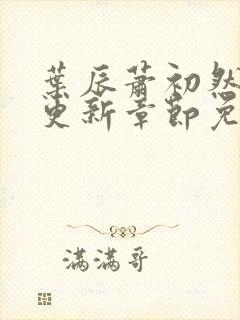 葉辰蕭初然
更新章節免
滿滿哥